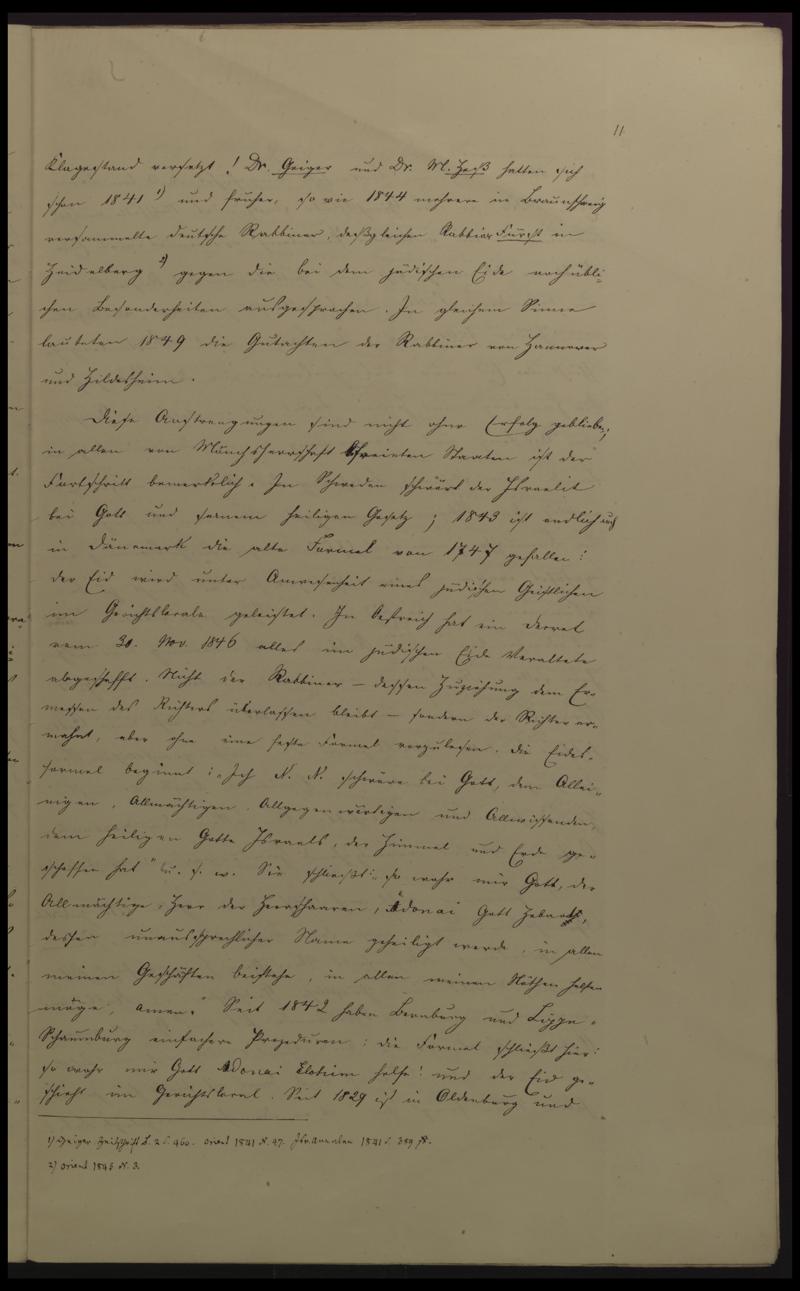 11
Klagestand versetzt! Dr. Geiger und Dr. M. Heß hatten sich
schon 1841 1) und früher, so wie 1844 mehrere in Braunschweig
versammelte deutsche Rabbiner, desgleichen Rabbiner Fürst in
Heidelberg 2) gegen die bei dem jüdischen Eide noch übli-
chen Besonderheiten ausgesprochen. In gleichem Sinne
lauteten 1849 die Gutachten der Rabbiner von Hannover
und Hildesheim.
Diese Anstrengungen sind nicht ohne Erfolg geblieben;
in allen von Mönchsherrschaft befreieten Staaten ist der
Fortschritt bemerklich. In Schweden schwört der Israelit
bei Gott und seinem heiligen Gesetz; 1843 ist endlich auch
in Dänemark die alte Formel von 1747 gefallen:
der Eid wird unter Anwesenheit eines jüdischen Geistlichen
im Gerichtslocale geleistet. In Oestreich hat ein Decret
vom 30. Nov. 1846 alles im jüdischen Eide Veraltete
abgeschafft. Nicht der Rabbiner – dessen Zuziehung dem Er-
messen des Richters überlassen bleibt – sondern der Richter er-
mahnt, aber ohne eine feste Formel vorzulesen. Die Eides-
formel beginnt: „Ich N. N. schwöre bei Gott, dem Allei-
nigen, Allmächtigen, Allgegenwärtigen und Allwissenden,
dem heiligen Gotte Israels, der Himmel und Erde ge-
schaffen hat" u. s. w. Sie schließt: „so wahr mir Gott, der
Allmächtige, Herr der Heerschaaren, Adonai Gott Zebaoth,
dessen unaussprechlicher Name geheiligt werde, in allen
meinen Geschäften beistehe, in allen meinen Nöthen helfen
möge, amen." Seit 1842 haben Bernburg und Lippe-
Schaumburg einfachere Prozeduren: die Formel schließt hier:
so wahr mir Gott Adonai Elohim helfe! und der Eid ge-
schieht im Gerichtslocal. Seit 1829 ist in Oldenburg und
1) Geiger Zeitschrift B. 2 S. 460. Orient 1841 N. 47. Isr. Annalen 1841 S. 389 ff.
2) Orient 1845 N. 3.